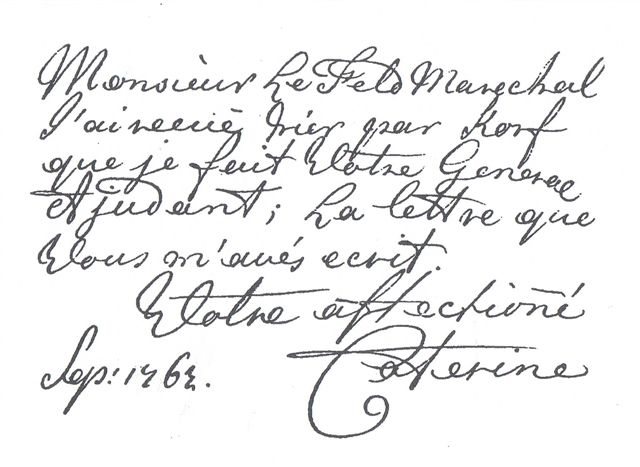 Monsieur Le Feld Marechal
J'ai reçuë hier par Korf
que je fait Votre General
Ajudant; La lettre que
Vous m'avés ecrit.
Votre affectioñé
Caterine
Sep: 1762.